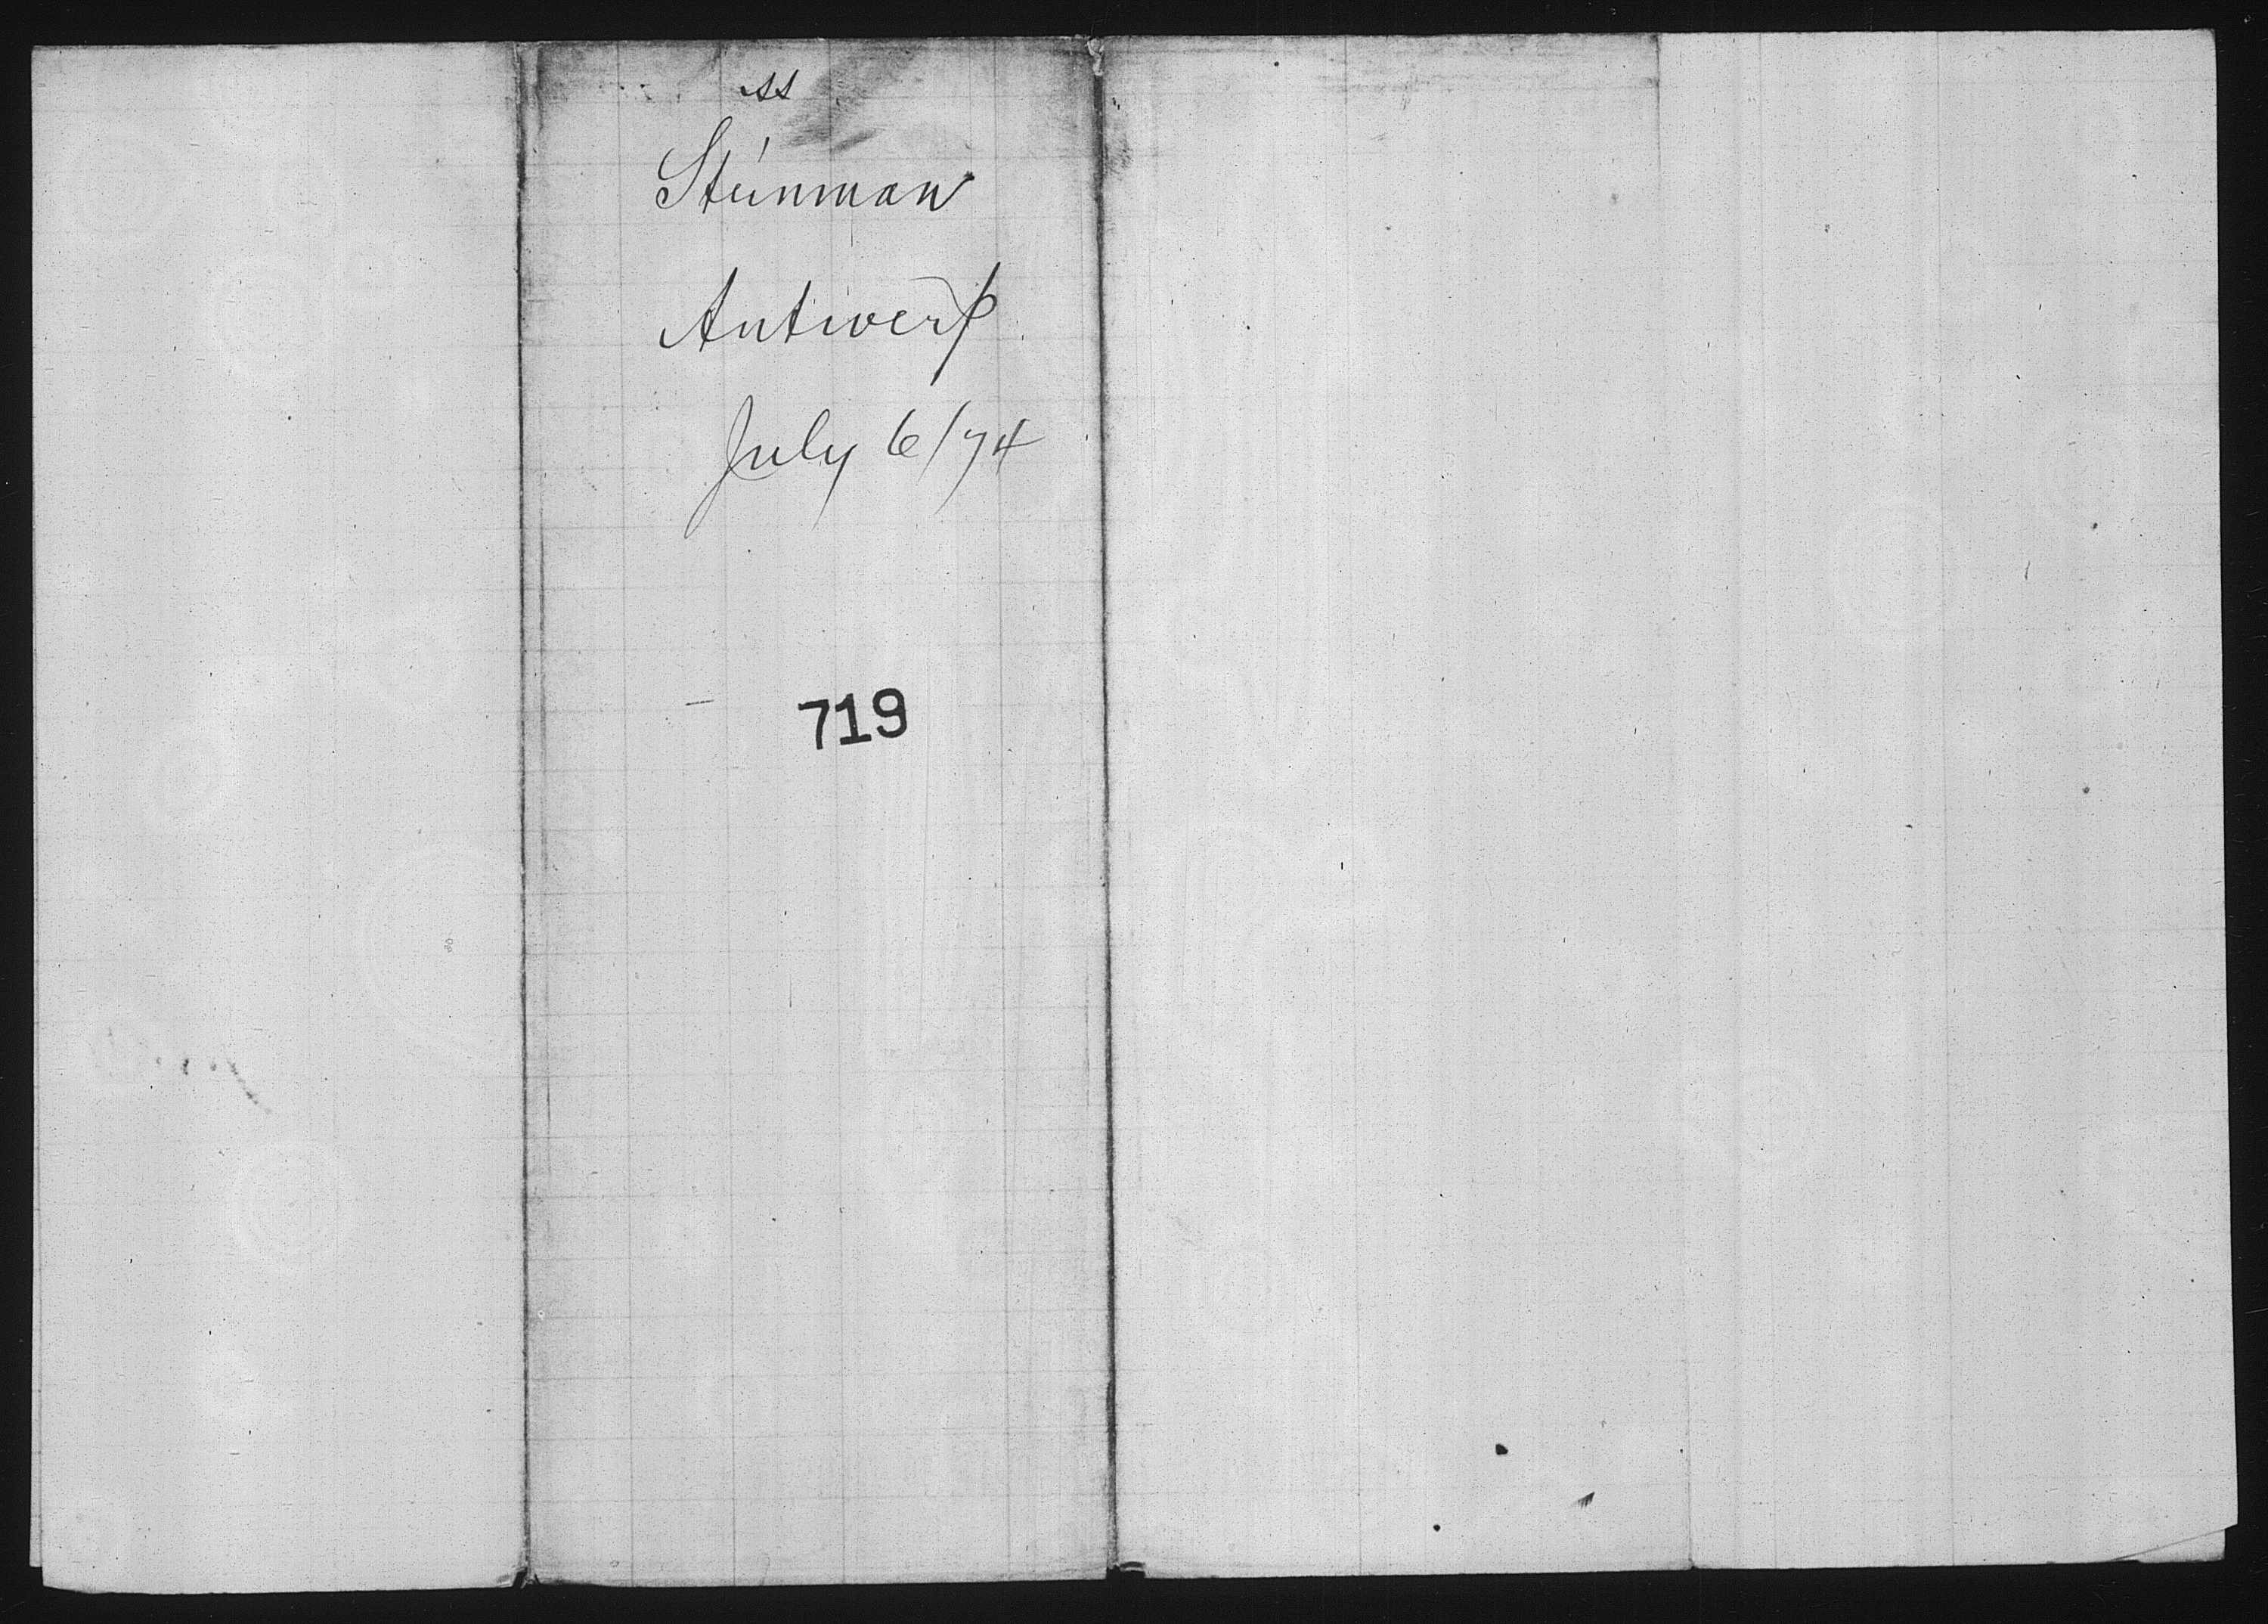 ss
Steinman
Antwerp
July 6/74
719